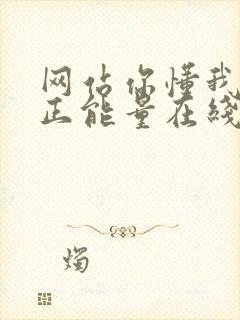 网站你懂我
正能量在线
烛